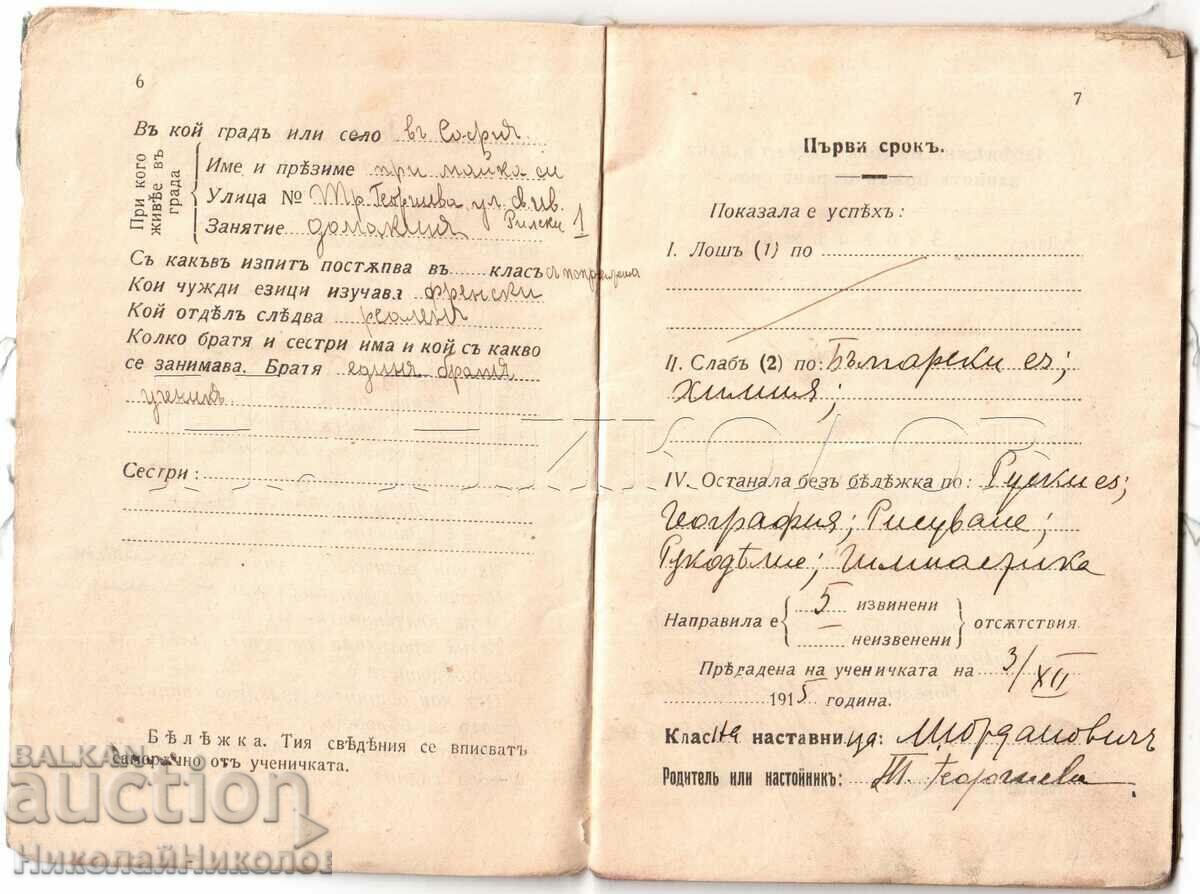 6
Въ кой градъ или село въ София.
При кого живѣе въ града
Име и прѣзиме при майка си
Улица № Тр. Георгиева ул. Ив.
Занятие домакиня Рилски 1
Съ какъвъ изпитъ постѫпва въ класъ
Кои чужди езици изучава френски
Кой отдѣлъ слѣдва реаленъ
Колко братя и сестри има и кой съ какво
се занимава. Братя единъ братъ
ученикъ
Сестри:
Бѣлѣжка. Тия свѣдѣния се вписватъ
саморѫчно отъ ученичката.
7
Първи срокъ.
Показала е успѣхъ:
I. Лошъ (1) по
II. Слабъ (2) по: Български ез;
Химия;
IV. Останала безъ бѣлѣжка по: Руски ез;
География; Рисуване;
Рукодѣлие; Гимнастика
Направила е 5 извинени
— неизвенени отсѫтствия.
Прѣдадена на ученичката на 3/XII
1915 година.
Класна наставница: Йордановичъ
Родитель или настойникъ: Т. Георгиева
BALKAN
auction
НиколайНиколов